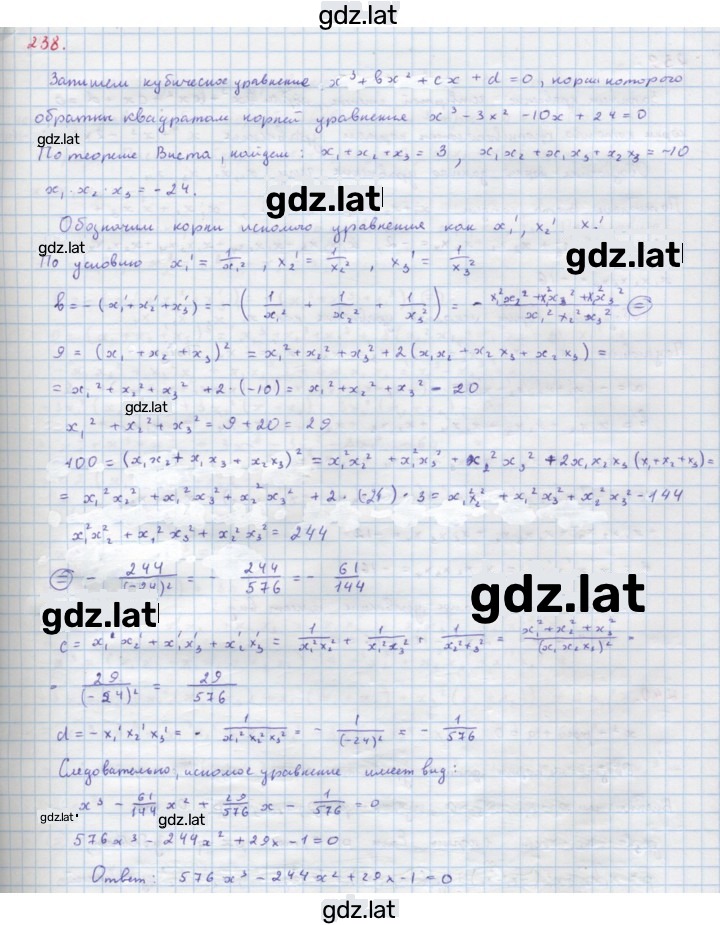 gdz.lat
238.
Запишем кубическое уравнение x³ + bx² + cx + d = 0, корни которого
обратны квадратам корней уравнения x³ - 3x² - 10x + 24 = 0
gdz.lat
По теореме Виета, найдем: x₁ + x₂ + x₃ = 3, x₁x₂ + x₁x₃ + x₂x₃ = -10
x₁ · x₂ · x₃ = -24.
gdz.lat
Обозначим корни искомого уравнения как x₁', x₂' x.'
gdz.lat
gdz.lat
По условию x₁' = 1/x₁², x₂' = 1/x₂², x₃' = 1/x₃²
b = -(x₁' + x₂' + x₃') = -(1/x₁² + 1/x₂² + 1/x₃²) = - (x₁²x₂² + x₁²x₃² + x₂²x₃²)/(x₁² x₂² x₃²) ⊜
9 = (x₁ + x₂ + x₃)² = x₁² + x₂² + x₃² + 2(x₁x₂ + x₂x₃ + x₂x₃) =
= x₁² + x₂² + x₃² + 2·(-10) = x₁² + x₂² + x₃² - 20
gdz.lat
x₁² + x₂² + x₃² = 9 + 20 = 29
100 = (x₁x₂ + x₁x₃ + x₂x₃)² = x₁²x₂² + x₁²x₃² + x₂²x₃² + 2x₁x₂x₃(x₁ + x₂ + x₃) =
= x₁²x₂² + x₁²x₃² + x₂²x₃² + 2·(-24)·3 = x₁²x₂² + x₁²x₃² + x₂²x₃² - 144
x₁²x₂² + x₁²x₃² + x₂²x₃² = 244
⊜ - 244/(-24)² = - 244/576 = - 61/144
gdz.lat
gdz.lat
c = x₁'x₂' + x₁'x₃' + x₂'x₃' = 1/(x₁²x₂²) + 1/(x₁²x₃²) + 1/(x₂²x₃²) = (x₁² + x₂² + x₃²)/(x₁x₂x₃)² =
= 29/(-24)² = 29/576
d = -x₁'x₂'x₃' = - 1/(x₁²x₂²x₃²) = - 1/(-24)² = - 1/576
Следовательно, искомое уравнение имеет вид:
x³ - 61/144 x² + 29/576 x - 1/576 = 0
gdz.lat
gdz.lat
576x³ - 244x² + 29x - 1 = 0
Ответ: 576x³ - 244x² + 29x - 1 = 0
gdz.lat